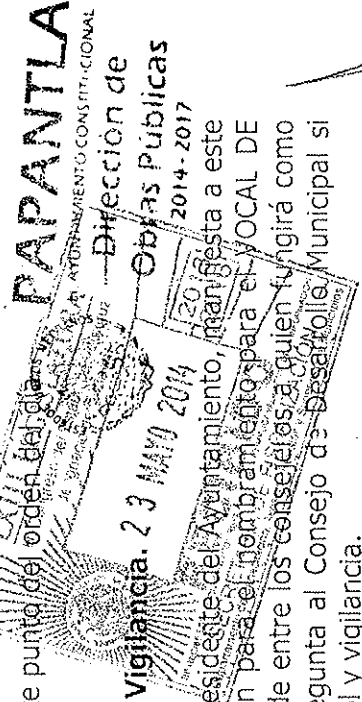 PAPANTLA
H. AYUNTAMIENTO CONSTITUCIONAL
Dirección de
Obras Públicas
2014-2017
e punto del orden del día
Vigilancia. 23 MAYO 2014
esidente del Ayuntamiento, manifiesta a este
n para el nombramiento para el VOCAL DE
de entre los consejeros a quien fungirá como
egunta al Consejo de Desarrollo Municipal si
ol y vigilancia.